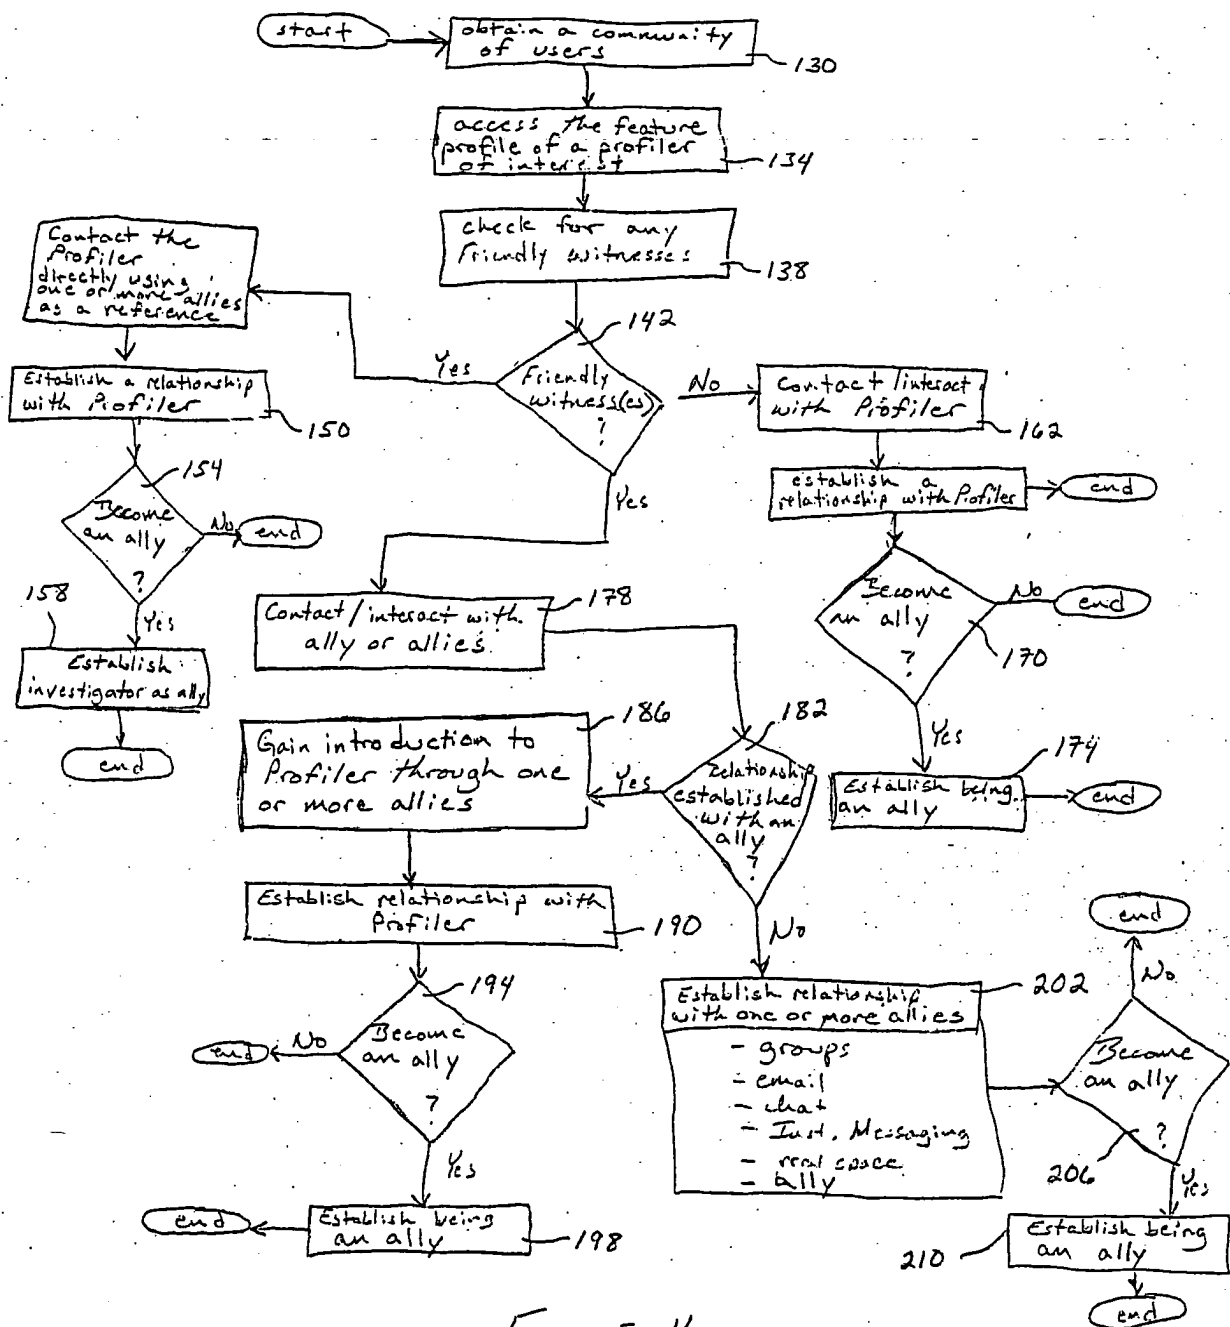 start
obtain a community
of users
130
access the feature
profile of a profiler
of interest
134
check for any
Friendly witnesses
138
Contact the
Profiler
directly using
one or more allies
as a reference
142
Friendly
witness(es)
?
Yes
No
Yes
Establish a relationship
with Profiler
150
154
Become
an ally
?
No
end
158
Yes
Establish
investigator as ally
end
Contact/interact
with Profiler
162
establish a
relationship with Profiler
end
Become
an ally
?
No
end
170
Yes
174
Establish being
an ally
end
Contact/interact with
ally or allies
178
182
Relationship
established
with an
ally
?
Yes
No
186
Gain introduction to
Profiler through one
or more allies
Establish relationship with
Profiler
190
194
Become
an ally
?
No
end
Yes
Establish being
an ally
198
end
202
Establish relationship
with one or more allies
- groups
- email
- chat
- Inst. Messaging
- real space
- ally
Become
an ally
?
206
No
end
Yes
210
Establish being
an ally
end